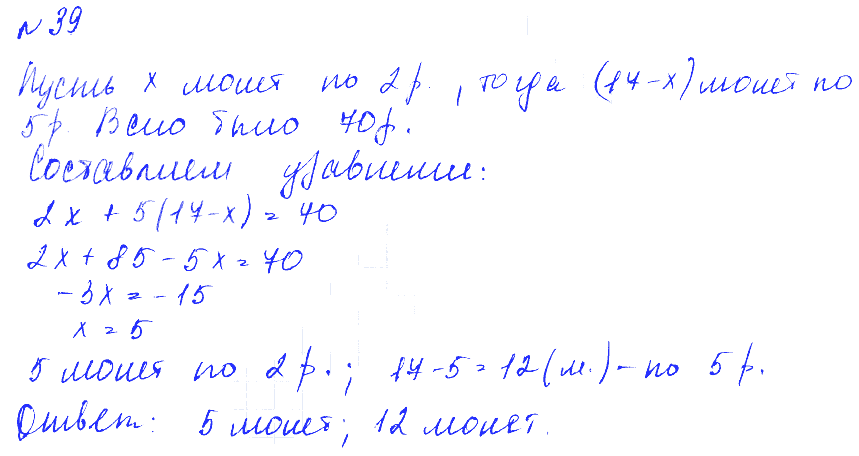 № 39
Пусть x монет по 2 р., тогда (17-x) монет по
5р. Всего было 70р.
Составляем уравнение:
2x + 5(17-x) = 70
2x + 85 - 5x = 70
-3x = -15
x = 5
5 монет по 2 р.; 17-5=12(м.) - по 5 р.
Ответ: 5 монет; 12 монет.